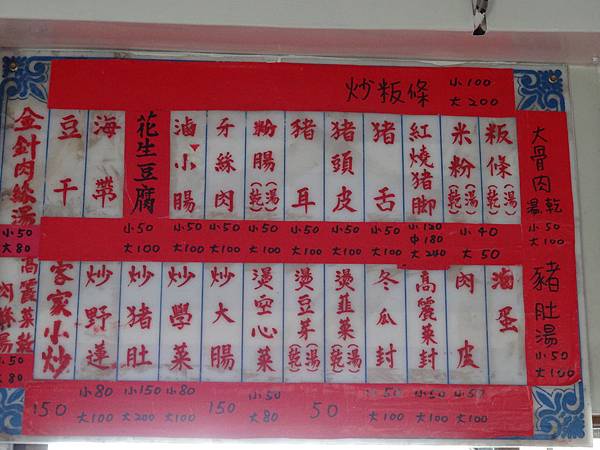 炒粄條 小100 大200
大骨肉 湯乾 小50 大100
豬肚湯 小50 大100
粄條(湯)(乾)
米粉(湯)(乾)
紅燒猪脚
猪舌
猪頭皮
猪耳
粉腸(湯)(乾)
牙絲肉
滷小腸
花生豆腐
海帶
豆干
小40 大50
小120 中180 大240
小50 大100
小50 大100
小50 大100
小50 大100
小50 大100
小50 大100
小50 大100
滷蛋
肉皮
高麗菜封
冬瓜封
燙韮菜(湯)(乾)
燙豆芽(湯)(乾)
燙空心菜
炒大腸
炒學菜
炒猪肚
炒野蓮
客家小炒
小50 大100
小50 大100
小50 大100
50
小50 大80
150
小80 大100
小150 大200
小80 大100
150
金針肉絲湯
小50 大80
高麗菜
肉絲湯
小50 大80